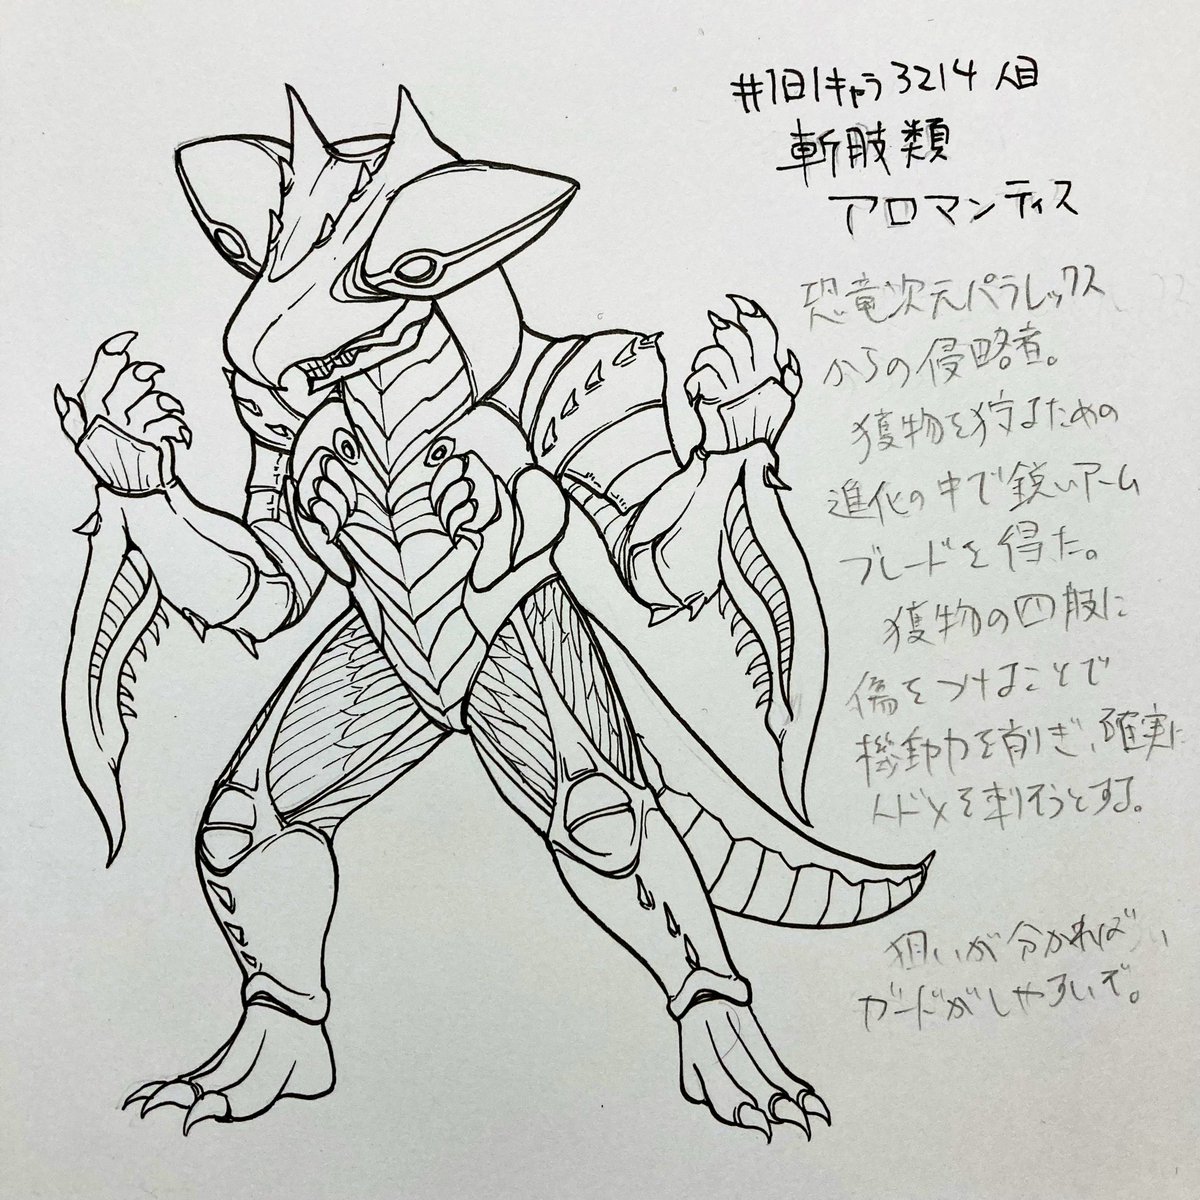 #1日1キャラ3214人目
斬肢類
アロマンティス
恐竜次元パラレックス
からの侵略者。
獲物を狩るための
進化の中で鋭いアーム
ブレードを得た。
獲物の四肢に
傷をつけることで
機動力を削ぎ、確実に
トドメを刺そうとする。
狙いが分かれば
ガードがしやすいぞ。